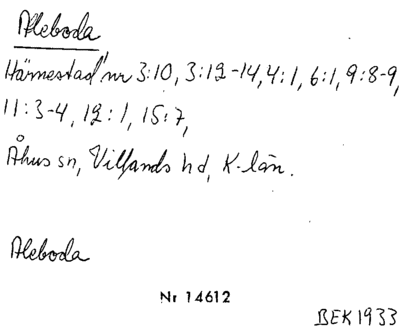 Aleboda,
Härnestad nr 3:10, 3:12-14, 4:1, 6:1, 9:8-9,
11:3-4, 12:1, 15:7,
Åhus sn, Villands hd, K-län.
Aleboda
Nr 14612
BEK 1933